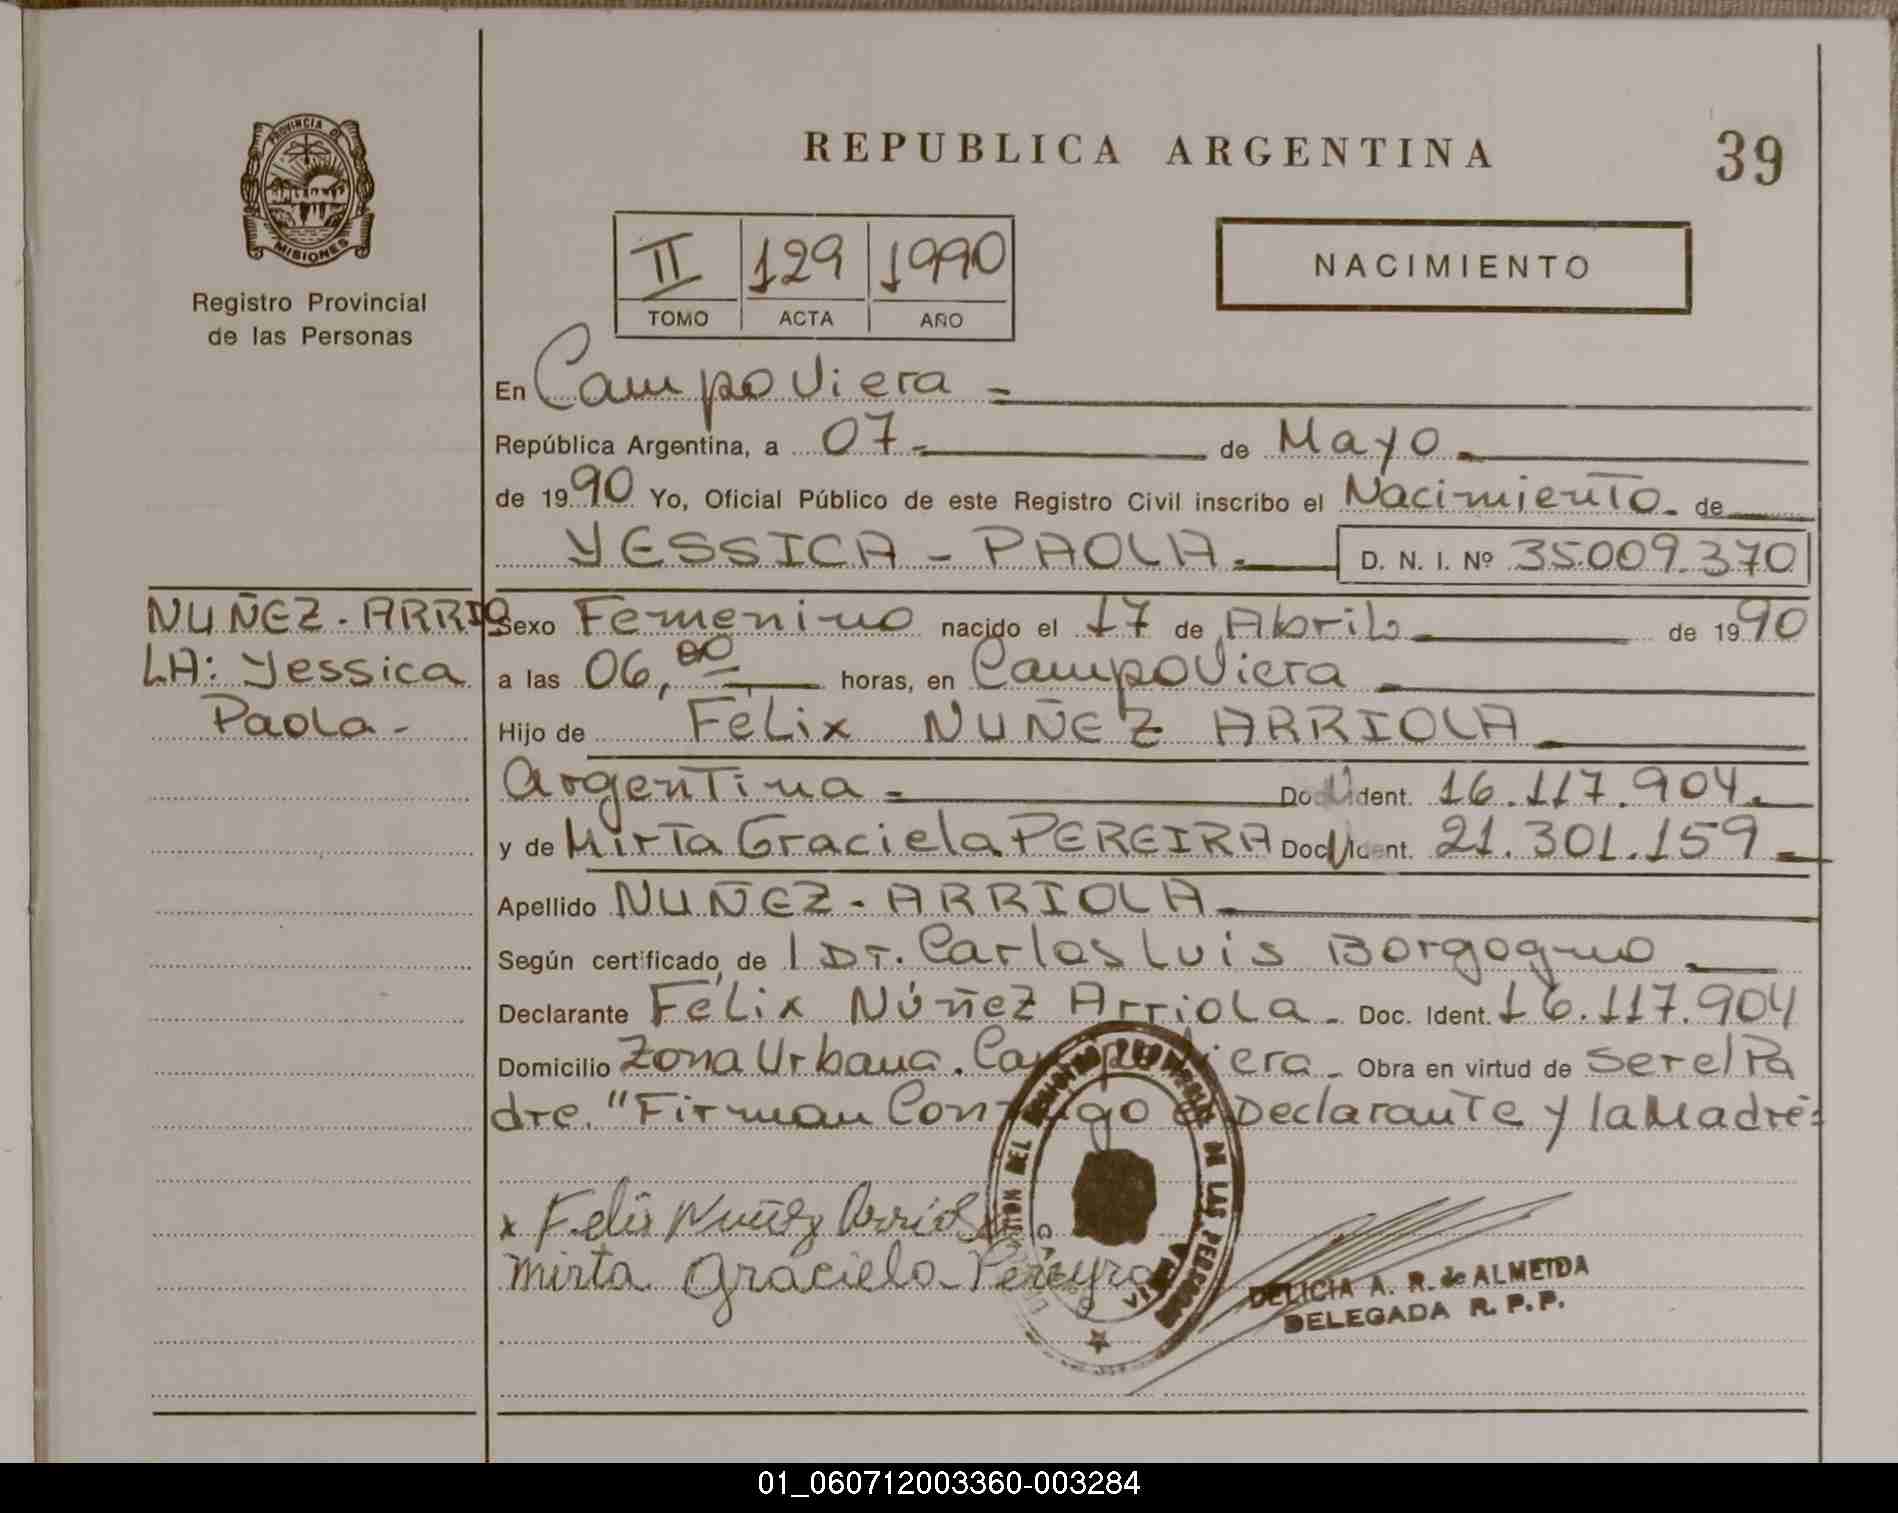 PROVINCIA DE
MISIONES
Registro Provincial
de las Personas
REPUBLICA ARGENTINA
39
II 129 1990
TOMO ACTA AÑO
NACIMIENTO
En Campo Viera =
República Argentina, a 07 - de Mayo -
de 1990 Yo, Oficial Público de este Registro Civil inscribo el Nacimiento - de
YESSICA - PAOLA - D. N. I. Nº 35.009.370
NUÑEZ - ARRIO
LA: Yessica
Paola -
Sexo Femenino nacido el 17 de Abril - de 1990
a las 06,00 horas, en Campo Viera -
Hijo de Felix NUÑEZ ARRIOLA -
Argentina = Doc. Ident. 16.117.904 -
y de Mirta Graciela PEREIRA Doc. Ident. 21.301.159 -
Apellido NUÑEZ - ARRIOLA -
Según certificado de l Dr. Carlos Luis Borgogno -
Declarante Félix Núñez Arriola - Doc. Ident. 16.117.904
Domicilio Zona Urbana. Campo Viera - Obra en virtud de Ser el Pa
dre. "Firman Conmigo el Declarante y la Madre =
x Felix Nuñez Arriola
Mirta Graciela Pereyra
DE LAS PERSONAS
VIERA
DELICIA A. R. de ALMEIDA
DELEGADA R. P. P.
01_060712003360-003284